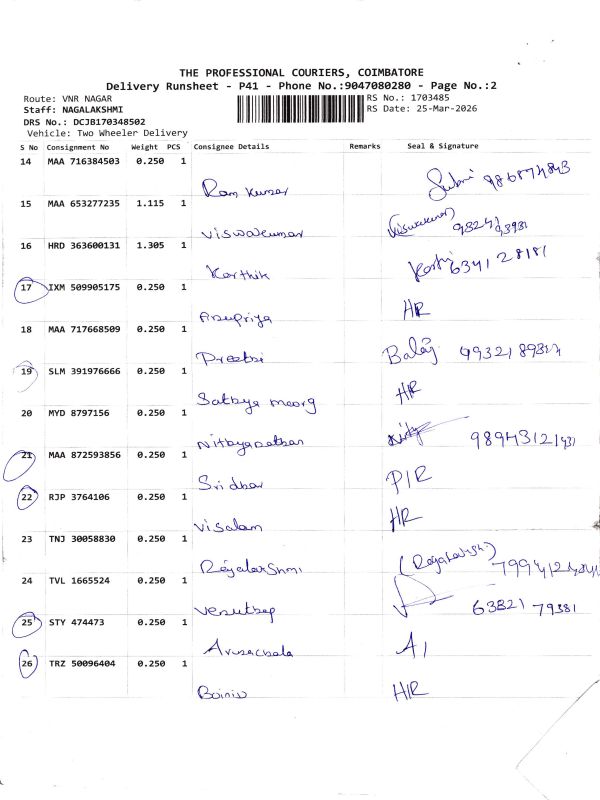 THE PROFESSIONAL COURIERS, COIMBATORE
Delivery Runsheet - P41 - Phone No.:9047080280 - Page No.:2
Route: VNR NAGAR
RS No.: 1703485
Staff: NAGALAKSHMI
RS Date: 25-Mar-2026
DRS No.: DCJB170348502
Vehicle: Two Wheeler Delivery
S No Consignment No Weight PCS Consignee Details Remarks Seal & Signature
14 MAA 716384503 0.250 1
Ram Kumar
15 MAA 653277235 1.115 1
Viswakumar
16 HRD 363600131 1.305 1
Karthik 63412 8181
17 IXM 509905175 0.250 1
Anupriya HR
18 MAA 717668509 0.250 1
Balaj
19 SLM 391976666 0.250 1
Sathya HR
20 MYD 8797156 0.250 1
21 MAA 872593856 0.250 1
Sridhar P/R
22 RJP 3764106 0.250 1
Visalam HR
23 TNJ 30058830 0.250 1
24 TVL 1665524 0.250 1
63821 79381
25 STY 474473 0.250 1
A1
26 TRZ 50096404 0.250 1
H/R